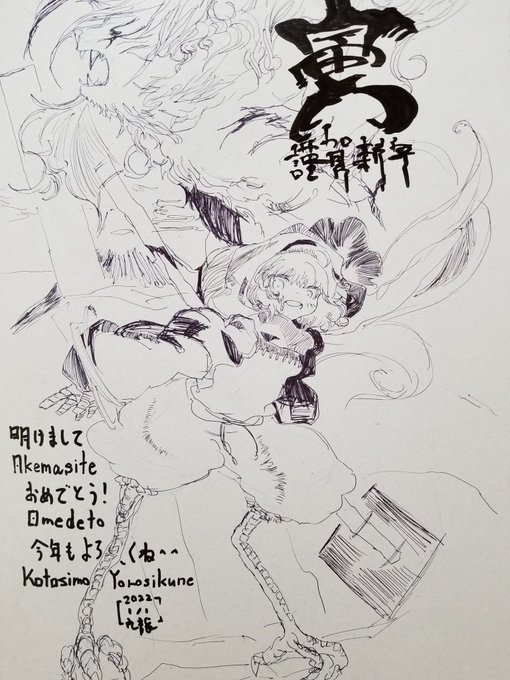 寅
謹賀新年
明けまして
Akemasite
おめでとう!
Omedeto
今年もよろしくね^^
Kotosimo Yorosikune
2022
1/1